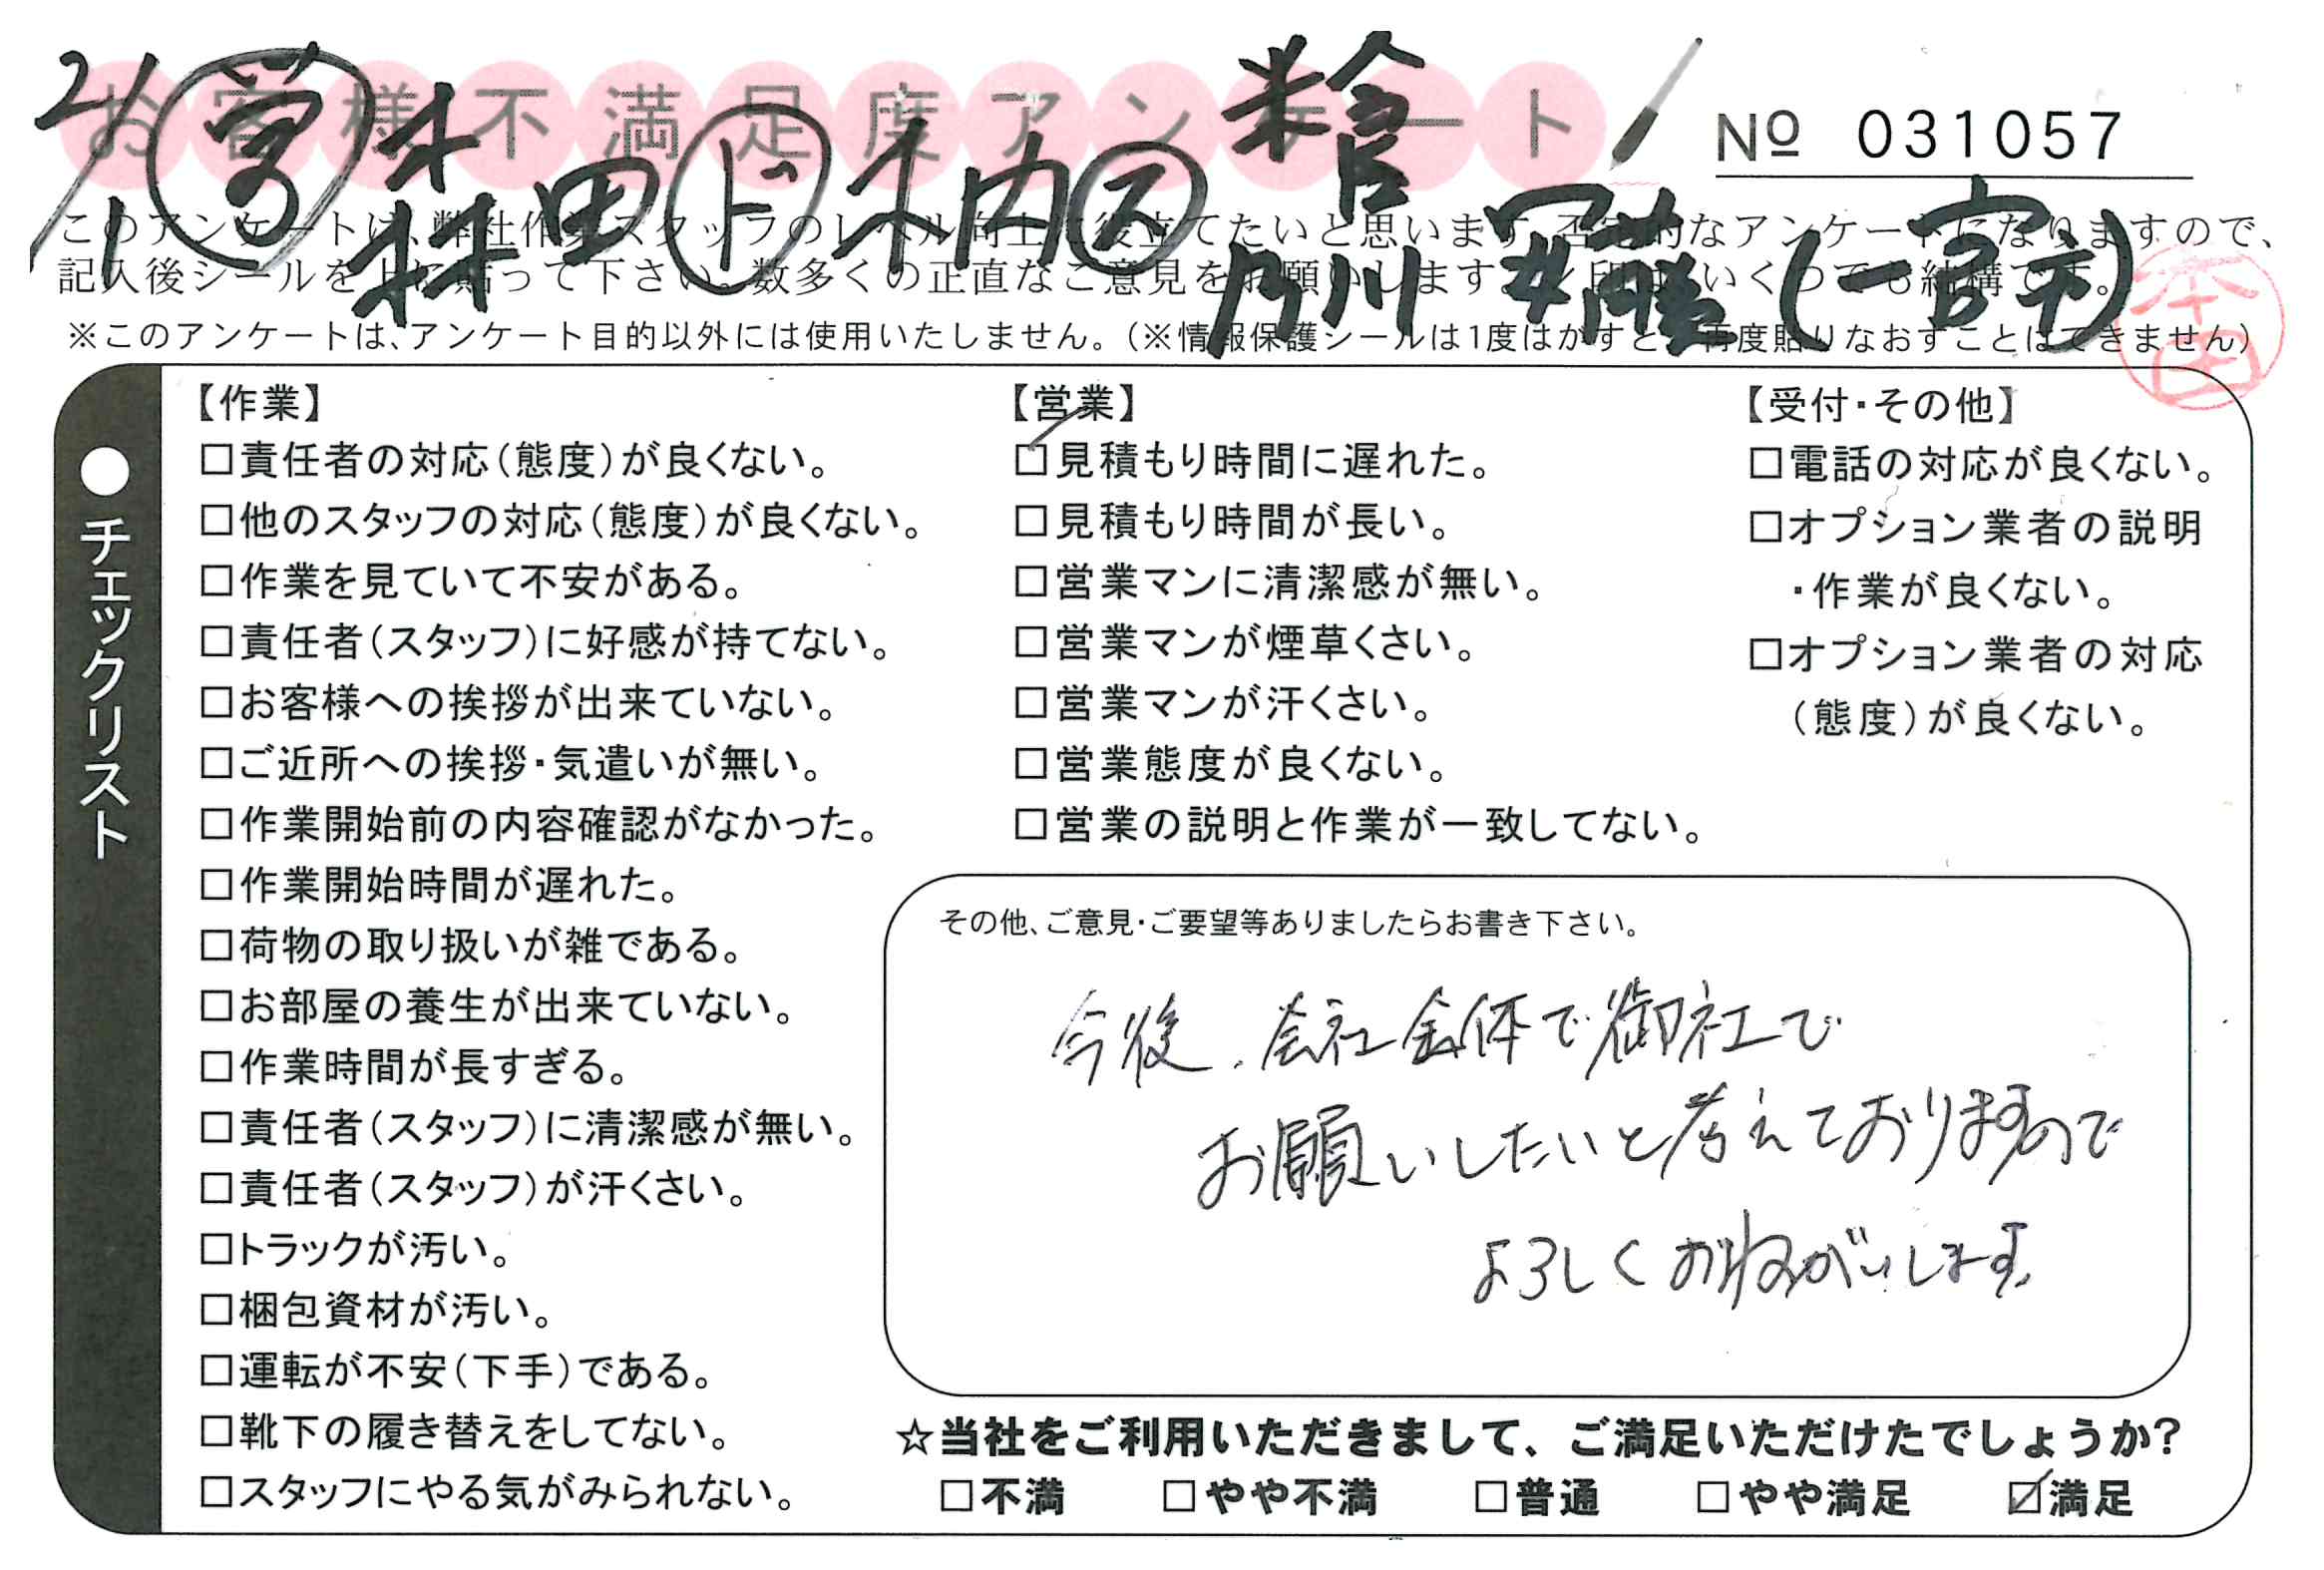 お客様不満足度アンケート
№ 031057
2/1 営 林 村田 ド 木内 ス
このアンケートは、弊社作業スタッフのレベル向上に役立てたいと思います。否定的なアンケートになりますので、
記入後シールを上に貼って下さい。数多くの正直なご意見をお願いします。
※このアンケートは、アンケート目的以外には使用いたしません。（※情報保護シールは1度はがすと、再度貼りなおすことはできません）
本田
チェックリスト
【作業】
□責任者の対応（態度）が良くない。
□他のスタッフの対応（態度）が良くない。
□作業を見ていて不安がある。
□責任者（スタッフ）に好感が持てない。
□お客様への挨拶が出来ていない。
□ご近所への挨拶・気遣いが無い。
□作業開始前の内容確認がなかった。
□作業開始時間が遅れた。
□荷物の取り扱いが雑である。
□お部屋の養生が出来ていない。
□作業時間が長すぎる。
□責任者（スタッフ）に清潔感が無い。
□責任者（スタッフ）が汗くさい。
□トラックが汚い。
□梱包資材が汚い。
□運転が不安（下手）である。
□靴下の履き替えをしてない。
□スタッフにやる気がみられない。
【営業】
□見積もり時間に遅れた。
□見積もり時間が長い。
□営業マンに清潔感が無い。
□営業マンが煙草くさい。
□営業マンが汗くさい。
□営業態度が良くない。
□営業の説明と作業が一致してない。
【受付・その他】
□電話の対応が良くない。
□オプション業者の説明
・作業が良くない。
□オプション業者の対応
（態度）が良くない。
その他、ご意見・ご要望等ありましたらお書き下さい。
今後、会社全体で御社で
お願いしたいと考えておりますので
よろしくおねがいします。
☆当社をご利用いただきまして、ご満足いただけたでしょうか？
□不満 □やや不満 □普通 □やや満足 ☑満足